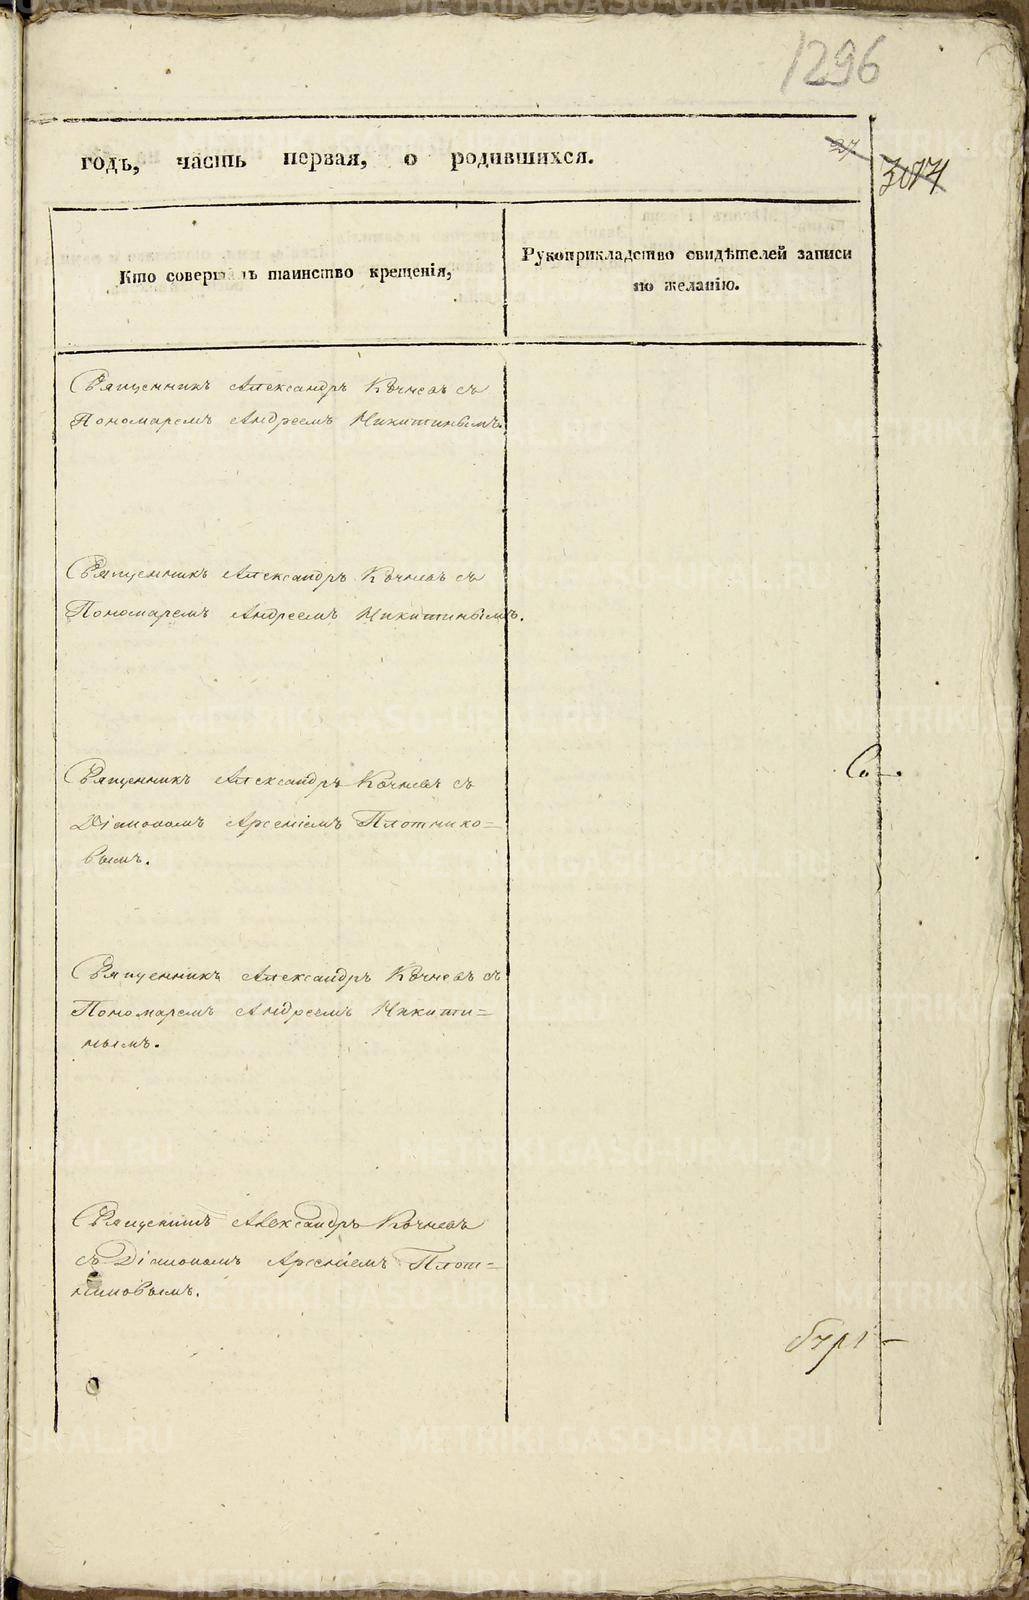 1296
годъ, часть первая, о родившихся.
27.
3074
Кто совершалъ таинство крещенія,
Рукоприкладство свидѣтелей записи
по желанію.
Священникъ Александръ Кочневъ съ
Пономаремъ Андреемъ Никитинымъ.
Священникъ Александръ Кочневъ съ
Пономаремъ Андреемъ Никитинымъ.
Священникъ Александръ Кочневъ съ
Діакономъ Арсеніемъ Плотнико=
вымъ.
Священникъ Александръ Кочневъ съ
Пономаремъ Андреемъ Никити=
нымъ.
Священникъ Александръ Кочневъ
съ Діакономъ Арсеніемъ Плот=
никовымъ.
METRIKI.GASO-URAL.RU